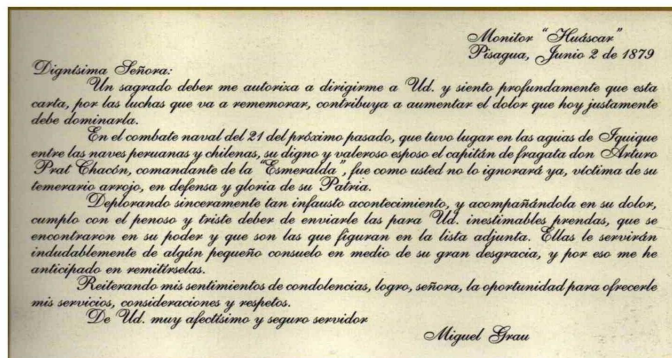 Monitor "Huáscar"
Pisagua, Junio 2 de 1879
Dignísima Señora:
Un sagrado deber me autoriza a dirigirme a Ud. y siento profundamente que esta
carta, por las luchas que va a rememorar, contribuya a aumentar el dolor que hoy justamente
debe dominarla.
En el combate naval del 21 del próximo pasado, que tuvo lugar en las aguas de Iquique
entre las naves peruanas y chilenas, su digno y valeroso esposo el capitán de fragata don Arturo
Prat Chacón, comandante de la "Esmeralda", fue como usted no lo ignorará ya, víctima de su
temerario arrojo, en defensa y gloria de su Patria.
Deplorando sinceramente tan infausto acontecimiento, y acompañándola en su dolor,
cumplo con el penoso y triste deber de enviarle las para Ud. inestimables prendas, que se
encontraron en su poder y que son las que figuran en la lista adjunta. Ellas le servirán
indudablemente de algún pequeño consuelo en medio de su gran desgracia, y por eso me he
anticipado en remitírselas.
Reiterando mis sentimientos de condolencias, logro, señora, la oportunidad para ofrecerle
mis servicios, consideraciones y respetos.
De Ud. muy afectísimo y seguro servidor
Miguel Grau